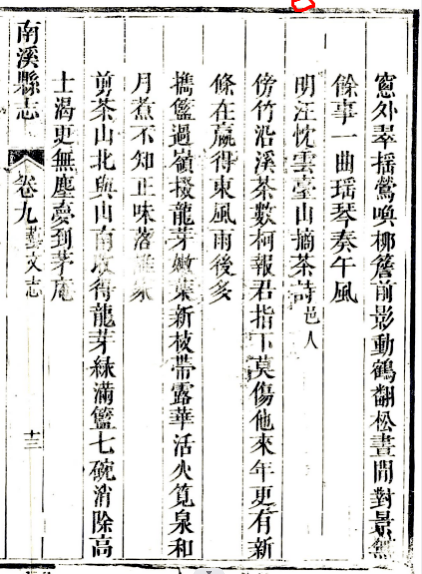 窻外翠揺鶯喚栁簷前影動鶴翻松晝閒對景無
餘事一曲瑶琴奏午風
明汪忱雲臺山摘茶詩邑人
傍竹沿溪茶數柯報君指下莫傷他來年更有新
條在贏得東風雨後多
攜籃過嶺掇龍芽嫩葉新枝帶露華活火筧泉和
月煮不知正味落誰家
剪茶山北與山南收得龍芽綠滿籃七碗消除高
士渴更無塵夢到茅庵
南溪縣志 卷九藝文志 十三